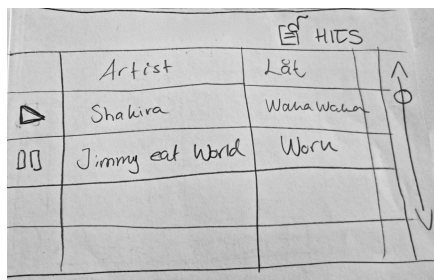 HITS
Artist Låt
Shakira Waka Waka
Jimmy eat World Work